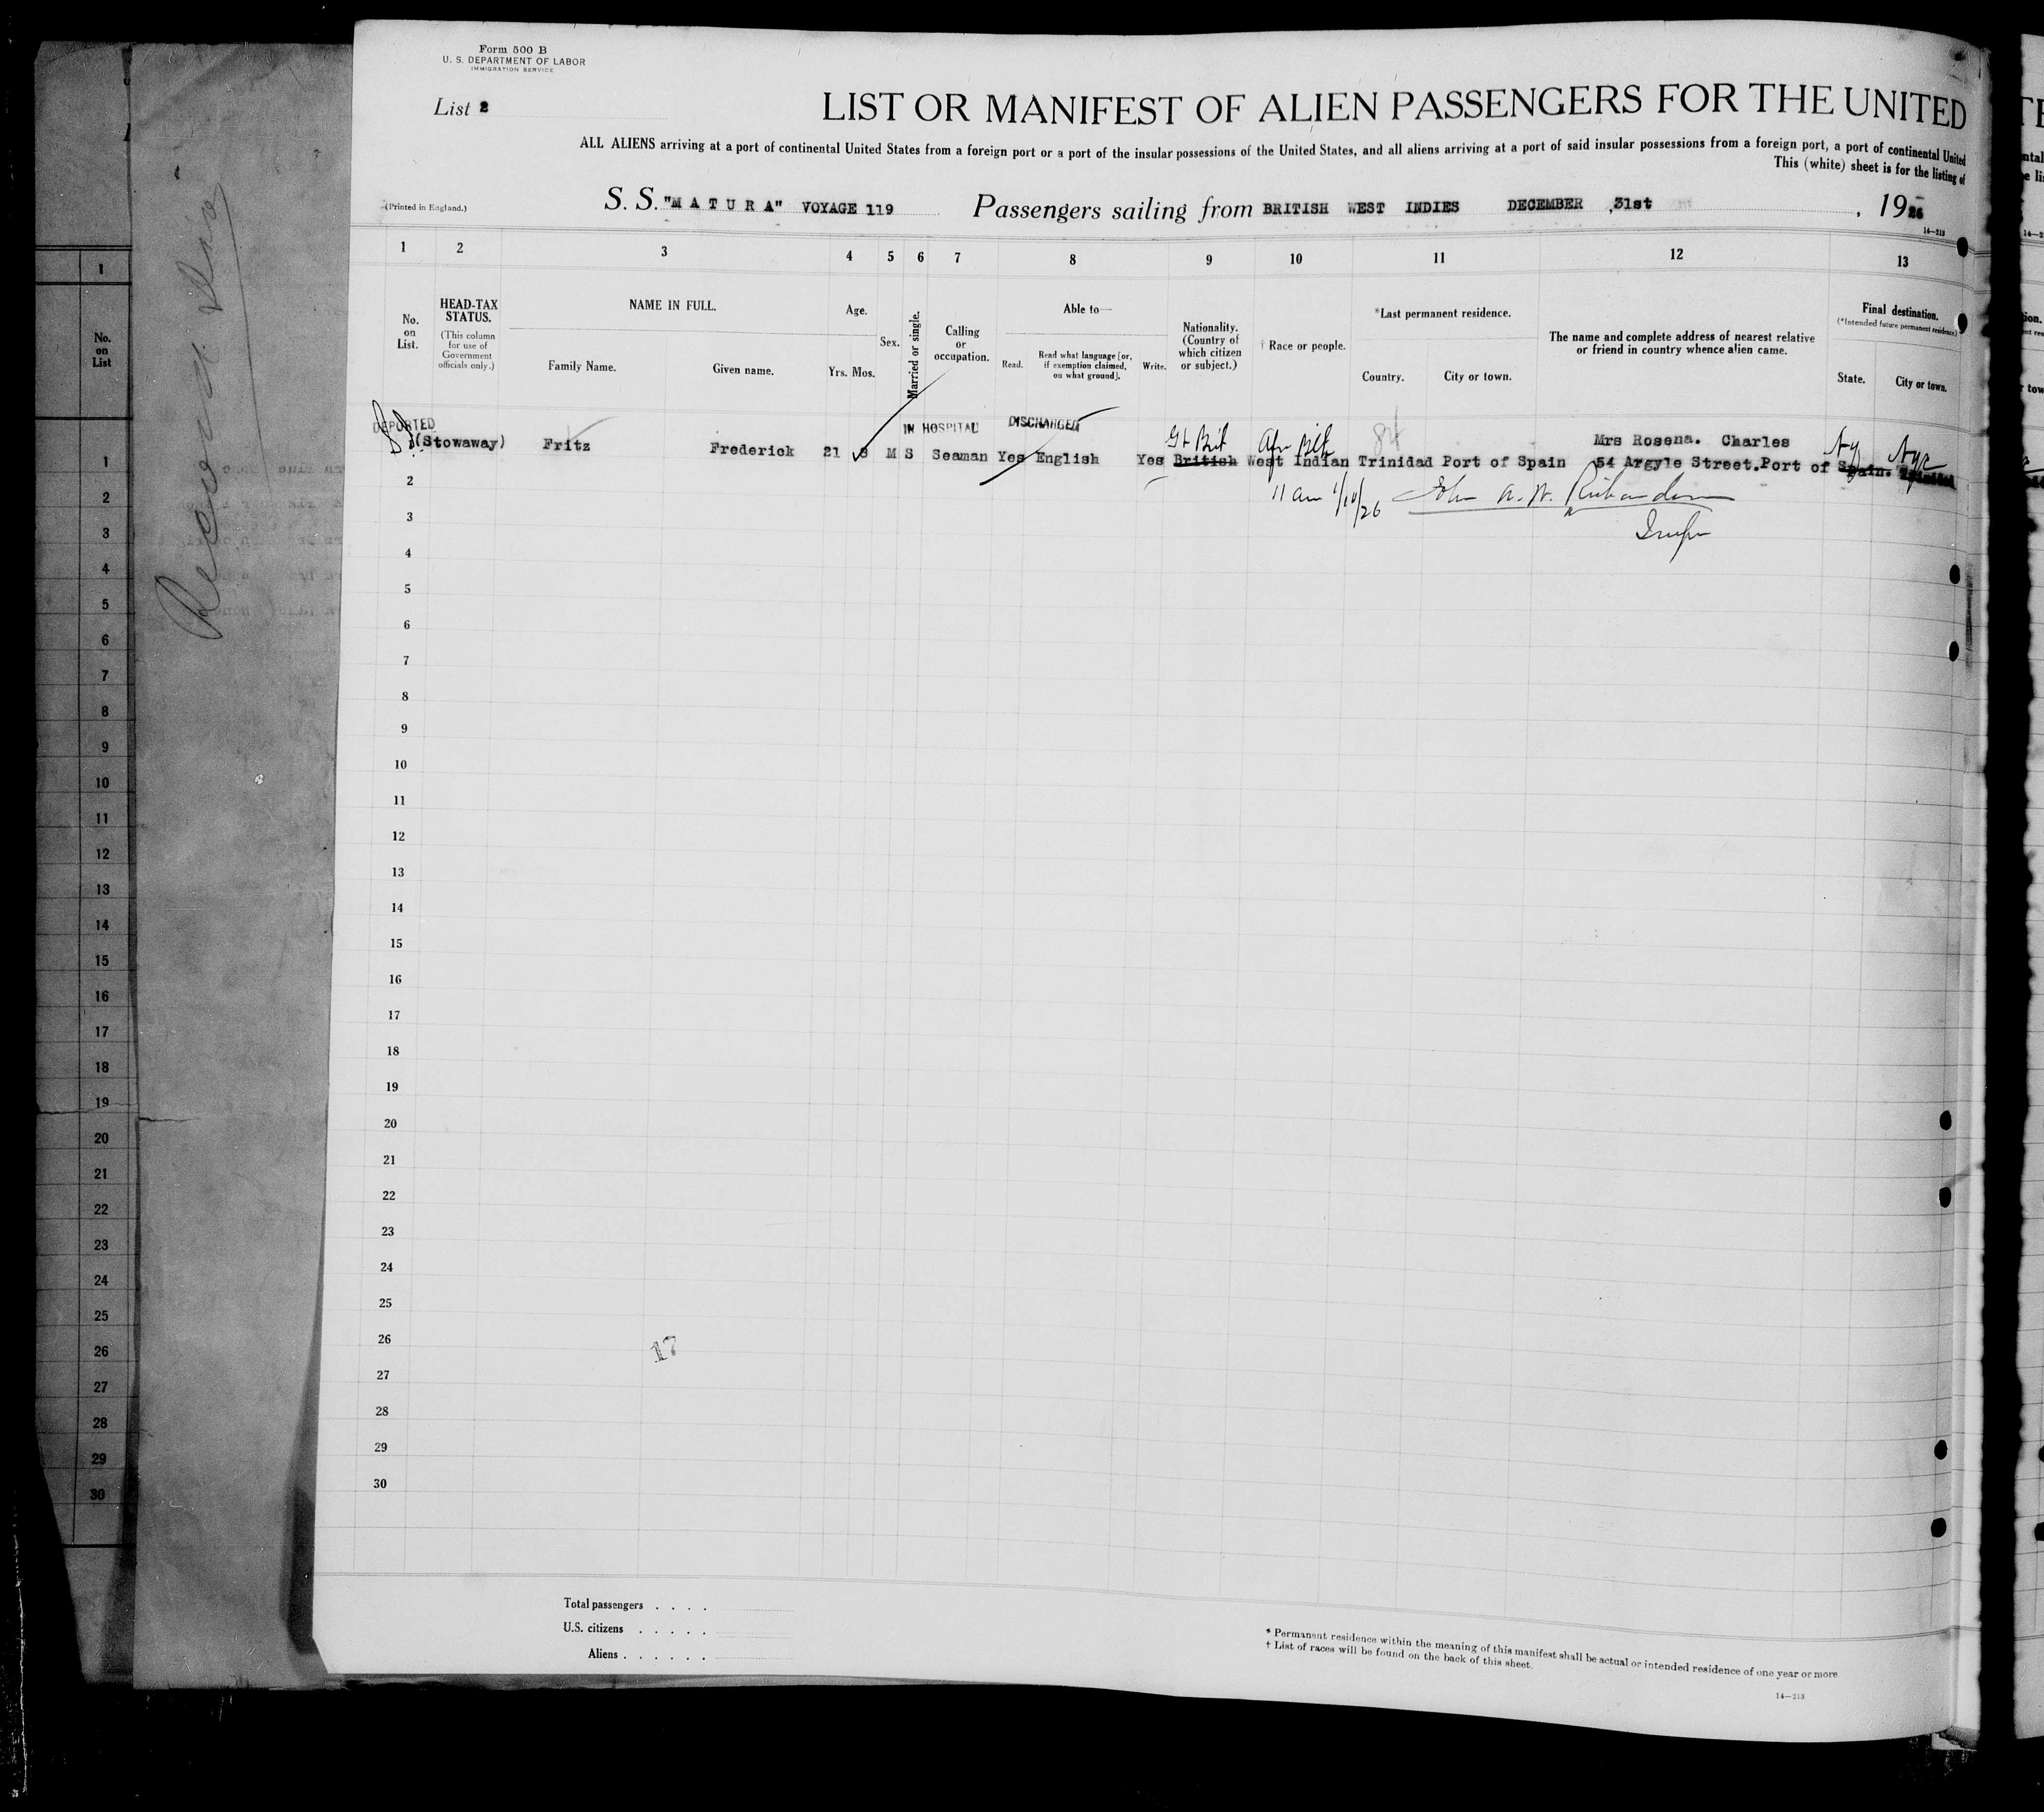 Form 500 B
U. S. DEPARTMENT OF LABOR
IMMIGRATION SERVICE
List 2
LIST OR MANIFEST OF ALIEN PASSENGERS FOR THE UNITED
ALL ALIENS arriving at a port of continental United States from a foreign port or a port of the insular possessions of the United States, and all aliens arriving at a port of said insular possessions from a foreign port, a port of continental United
This (white) sheet is for the listing of
(Printed in England.)
S. S. "MATURA" VOYAGE 119 Passengers sailing from BRITISH WEST INDIES DECEMBER ,31st , 1926
14—213
1 2 3 4 5 6 7 8 9 10 11 12 13
No. on List.
HEAD-TAX STATUS.
(This column for use of Government officials only.)
NAME IN FULL.
Family Name. Given name.
Age.
Yrs. Mos.
Sex.
Married or single.
Calling or occupation.
Able to—
Read. Read what language [or, if exemption claimed, on what ground]. Write.
Nationality. (Country of which citizen or subject.)
† Race or people.
*Last permanent residence.
Country. City or town.
The name and complete address of nearest relative or friend in country whence alien came.
Final destination.
(*Intended future permanent residence)
State. City or town.
DEPORTED IN HOSPITAL DISCHARGED
Gt Brit Afr Blk 84 Mrs Rosena. Charles NY NYC
1 (Stowaway) Fritz Frederick 21 M S Seaman Yes English Yes British West Indian Trinidad Port of Spain 54 Argyle Street.Port of Spain. Trinidad
11 am 1/10/26 John A. W. Richardson
Insp
2
3
4
5
6
7
8
9
10
11
12
13
14
15
16
17
18
19
20
21
22
23
24
25
26
17
27
28
29
30
Total passengers . . . .
U.S. citizens . . . . .
Aliens . . . . . .
* Permanent residence within the meaning of this manifest shall be actual or intended residence of one year or more.
† List of races will be found on the back of this sheet.
14—213
1
No. on List
1
2
3
4
5
6
7
8
9
10
11
12
13
14
15
16
17
18
19
20
21
22
23
24
25
26
27
28
29
30